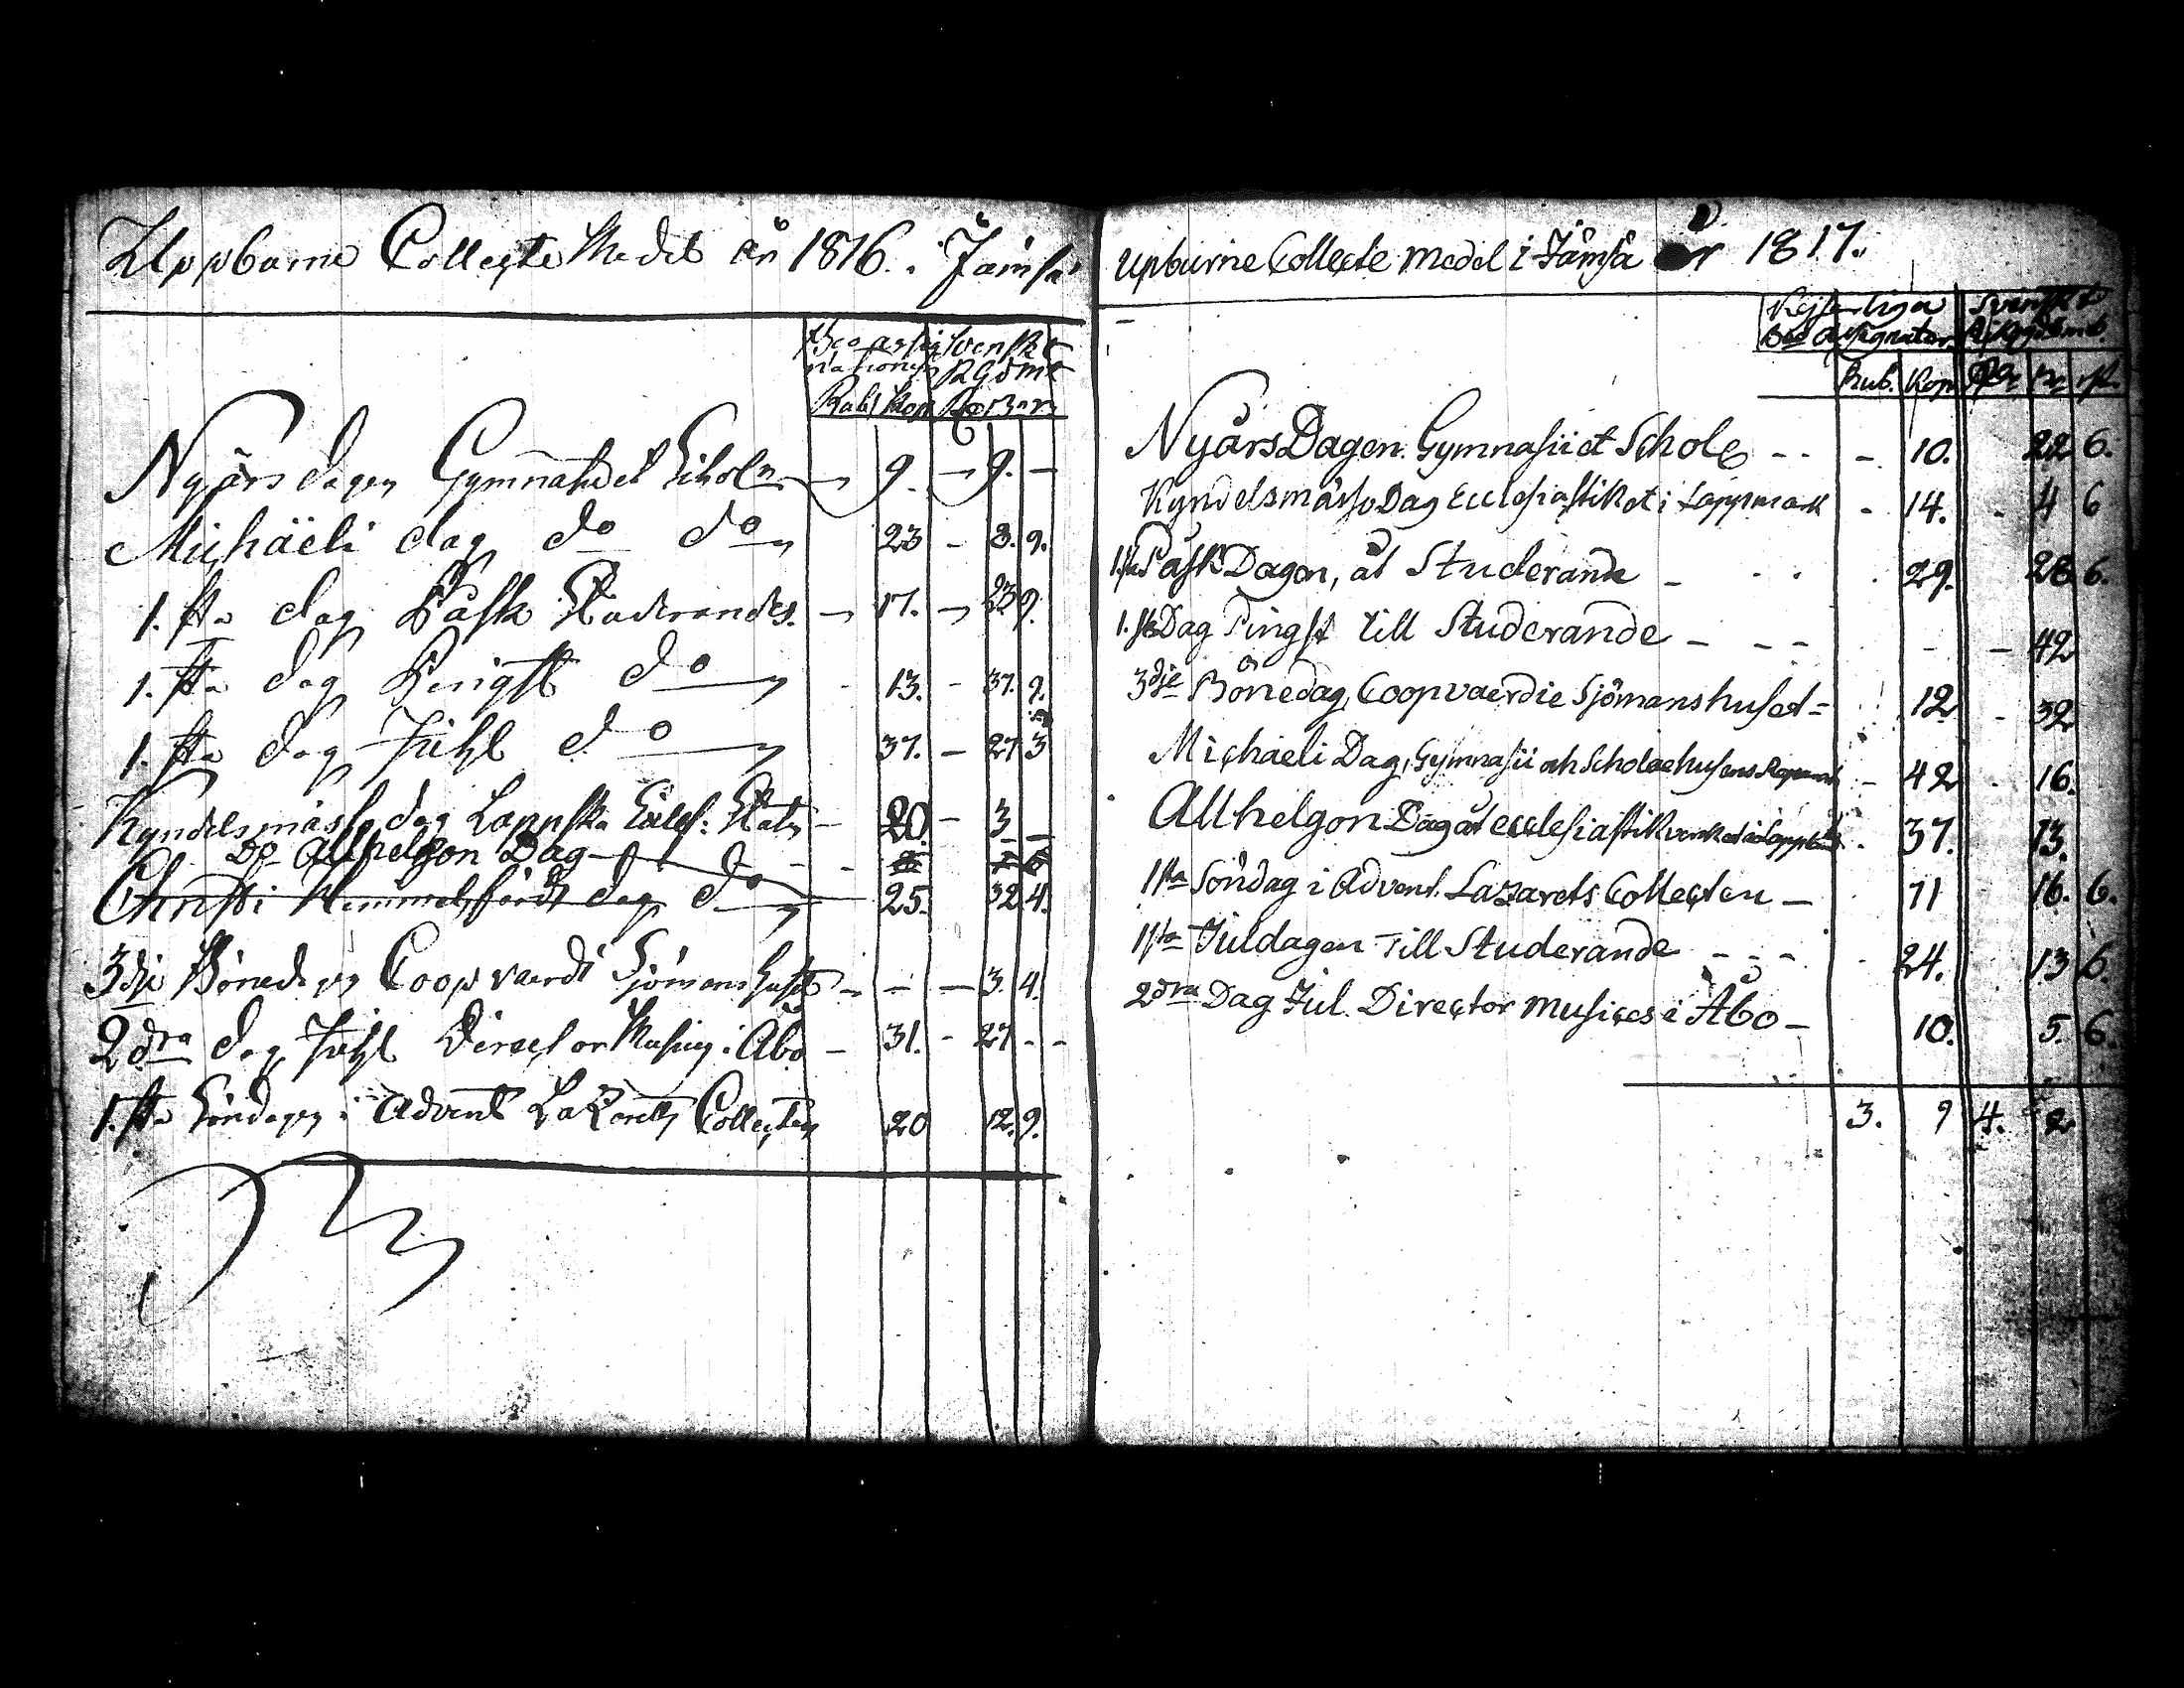 Uppburne Collecte Medel år 1816. i Jämsä
Bco assig- Svenskt
nationer RGdmt
Rub. Kop. Rd. Sk. rs.
Nyårsdagen Gymnasii et Scholæ — 9. — 9. —
Michäeli dag do do 23 — 8. 9.
1.sta dag Påsk Studerandes. — 17. — 23 9.
1.sta dag Pingst do - 13. — 37. 9.
1.sta dag Juhl do 37. — 27 3
Kyndelsmässo dag Lappska Eccles: Stat — 20. — 3 —
Do Allhelgon Dag
Christi Himmelsfärds dag do 25. 32. 4.
3dje Bönedagen Coopvaerdi Sjömanshuset — — — 3. 4.
2dra dag Juhl Director Musices i Åbo — 31. - 27 - -
1.sta Söndagen i Advent Lazaretts Collecten 20 12. 9.
Upburne Collecte Medel i Jämsä år 1817.
Kejserliga Svenskt
Bco Assignatior. Riksgäldmt.
Rub. Kop. Rd. sk. rst.
NyårsDagen. Gymnasii et Scholæ - - - 10. 22 6.
Kyndelsmässo Dag Ecclesiastiket i Lappmark - 14. - 4 6
1.sta PåskDagen, åt Studerande - - - 29. 28 6.
1.sta Dag Pingst till Studerande - - - - - 42
3dje Bönedag, Coopvaerdie Sjömanshuset - 12 - 32
Michaeli Dag, Gymnasii och Scholaehusens Reparat - 42 - 16.
Allhelgon Dag åt ecclesiastikverket i Lappmark - 37. 13.
1sta Söndag i Advent. Lazarets Collecten - 71 16. 6.
1sta Juldagen Till Studerande - - - 24. 13 6.
2dra Dag Jul. Director Musices i Åbo - 10. 5. 6.
3. 9 4. 2